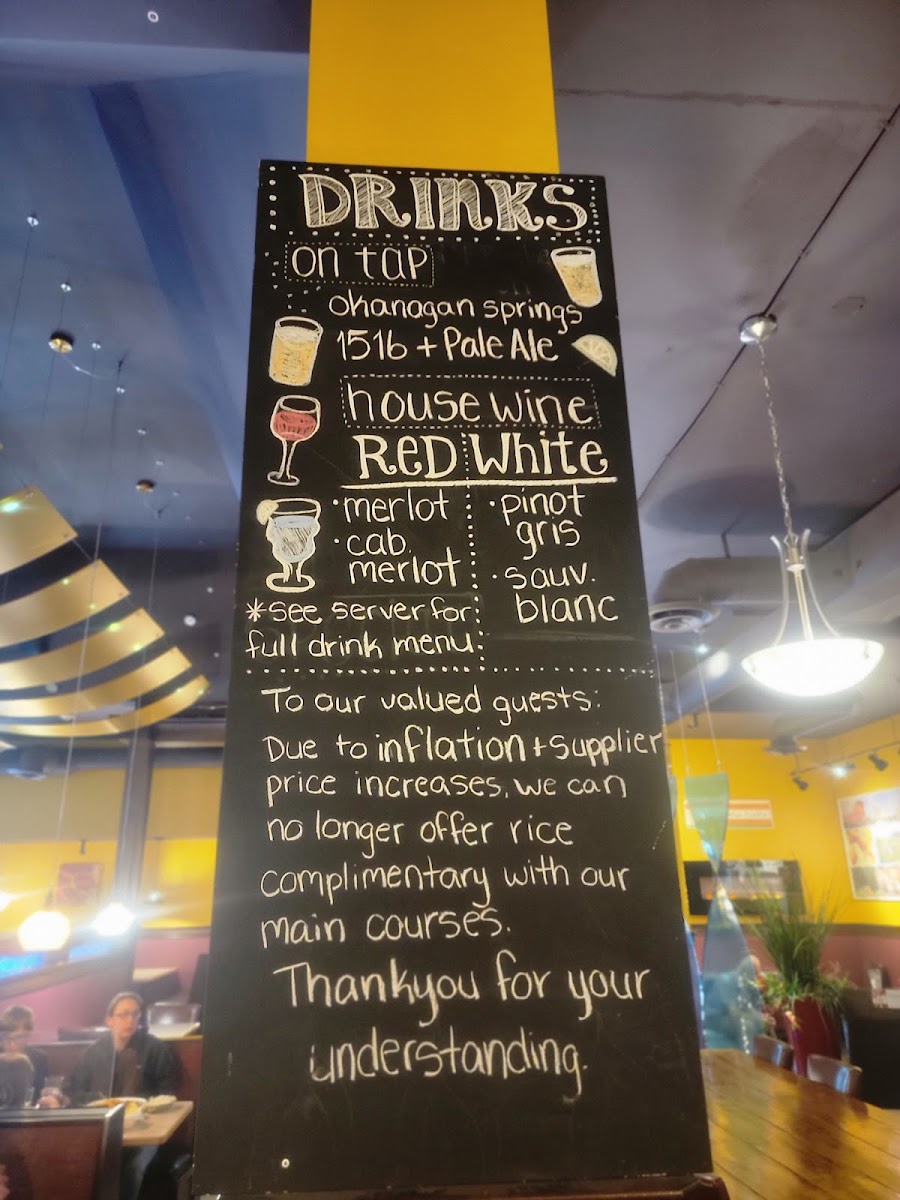 DRINKS
on tap
okanagan springs
1516 + Pale Ale
house wine
RED White
· merlot
· cab
merlot
· pinot
gris
· sauv.
blanc
*see server for
full drink menu
To our valued guests:
Due to inflation + supplier
price increases, we can
no longer offer rice
complimentary with our
main courses.
Thankyou for your
understanding.